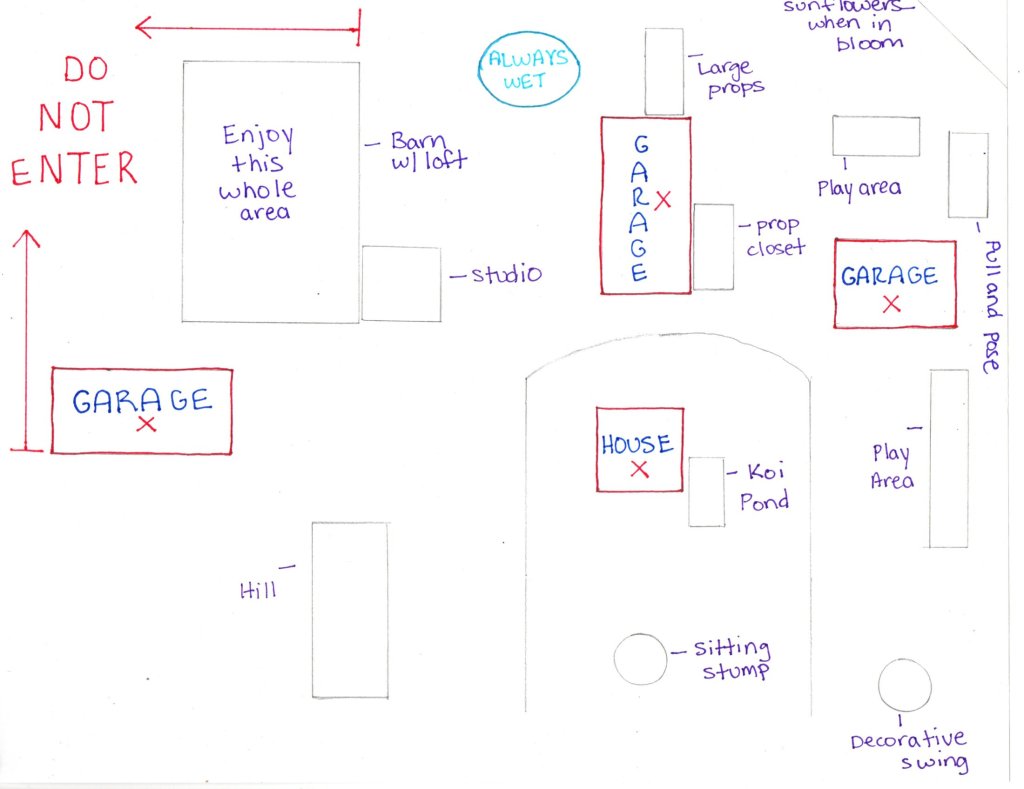 sunflowers
when in
bloom
DO
NOT
ENTER
ALWAYS
WET
Large
props
Enjoy
this
whole
area
Barn
w/ loft
GARAGE
X
Play area
prop
closet
studio
GARAGE
X
Pull and Pose
GARAGE
X
HOUSE
X
Koi
Pond
Play
Area
Hill
Sitting
stump
Decorative
swing